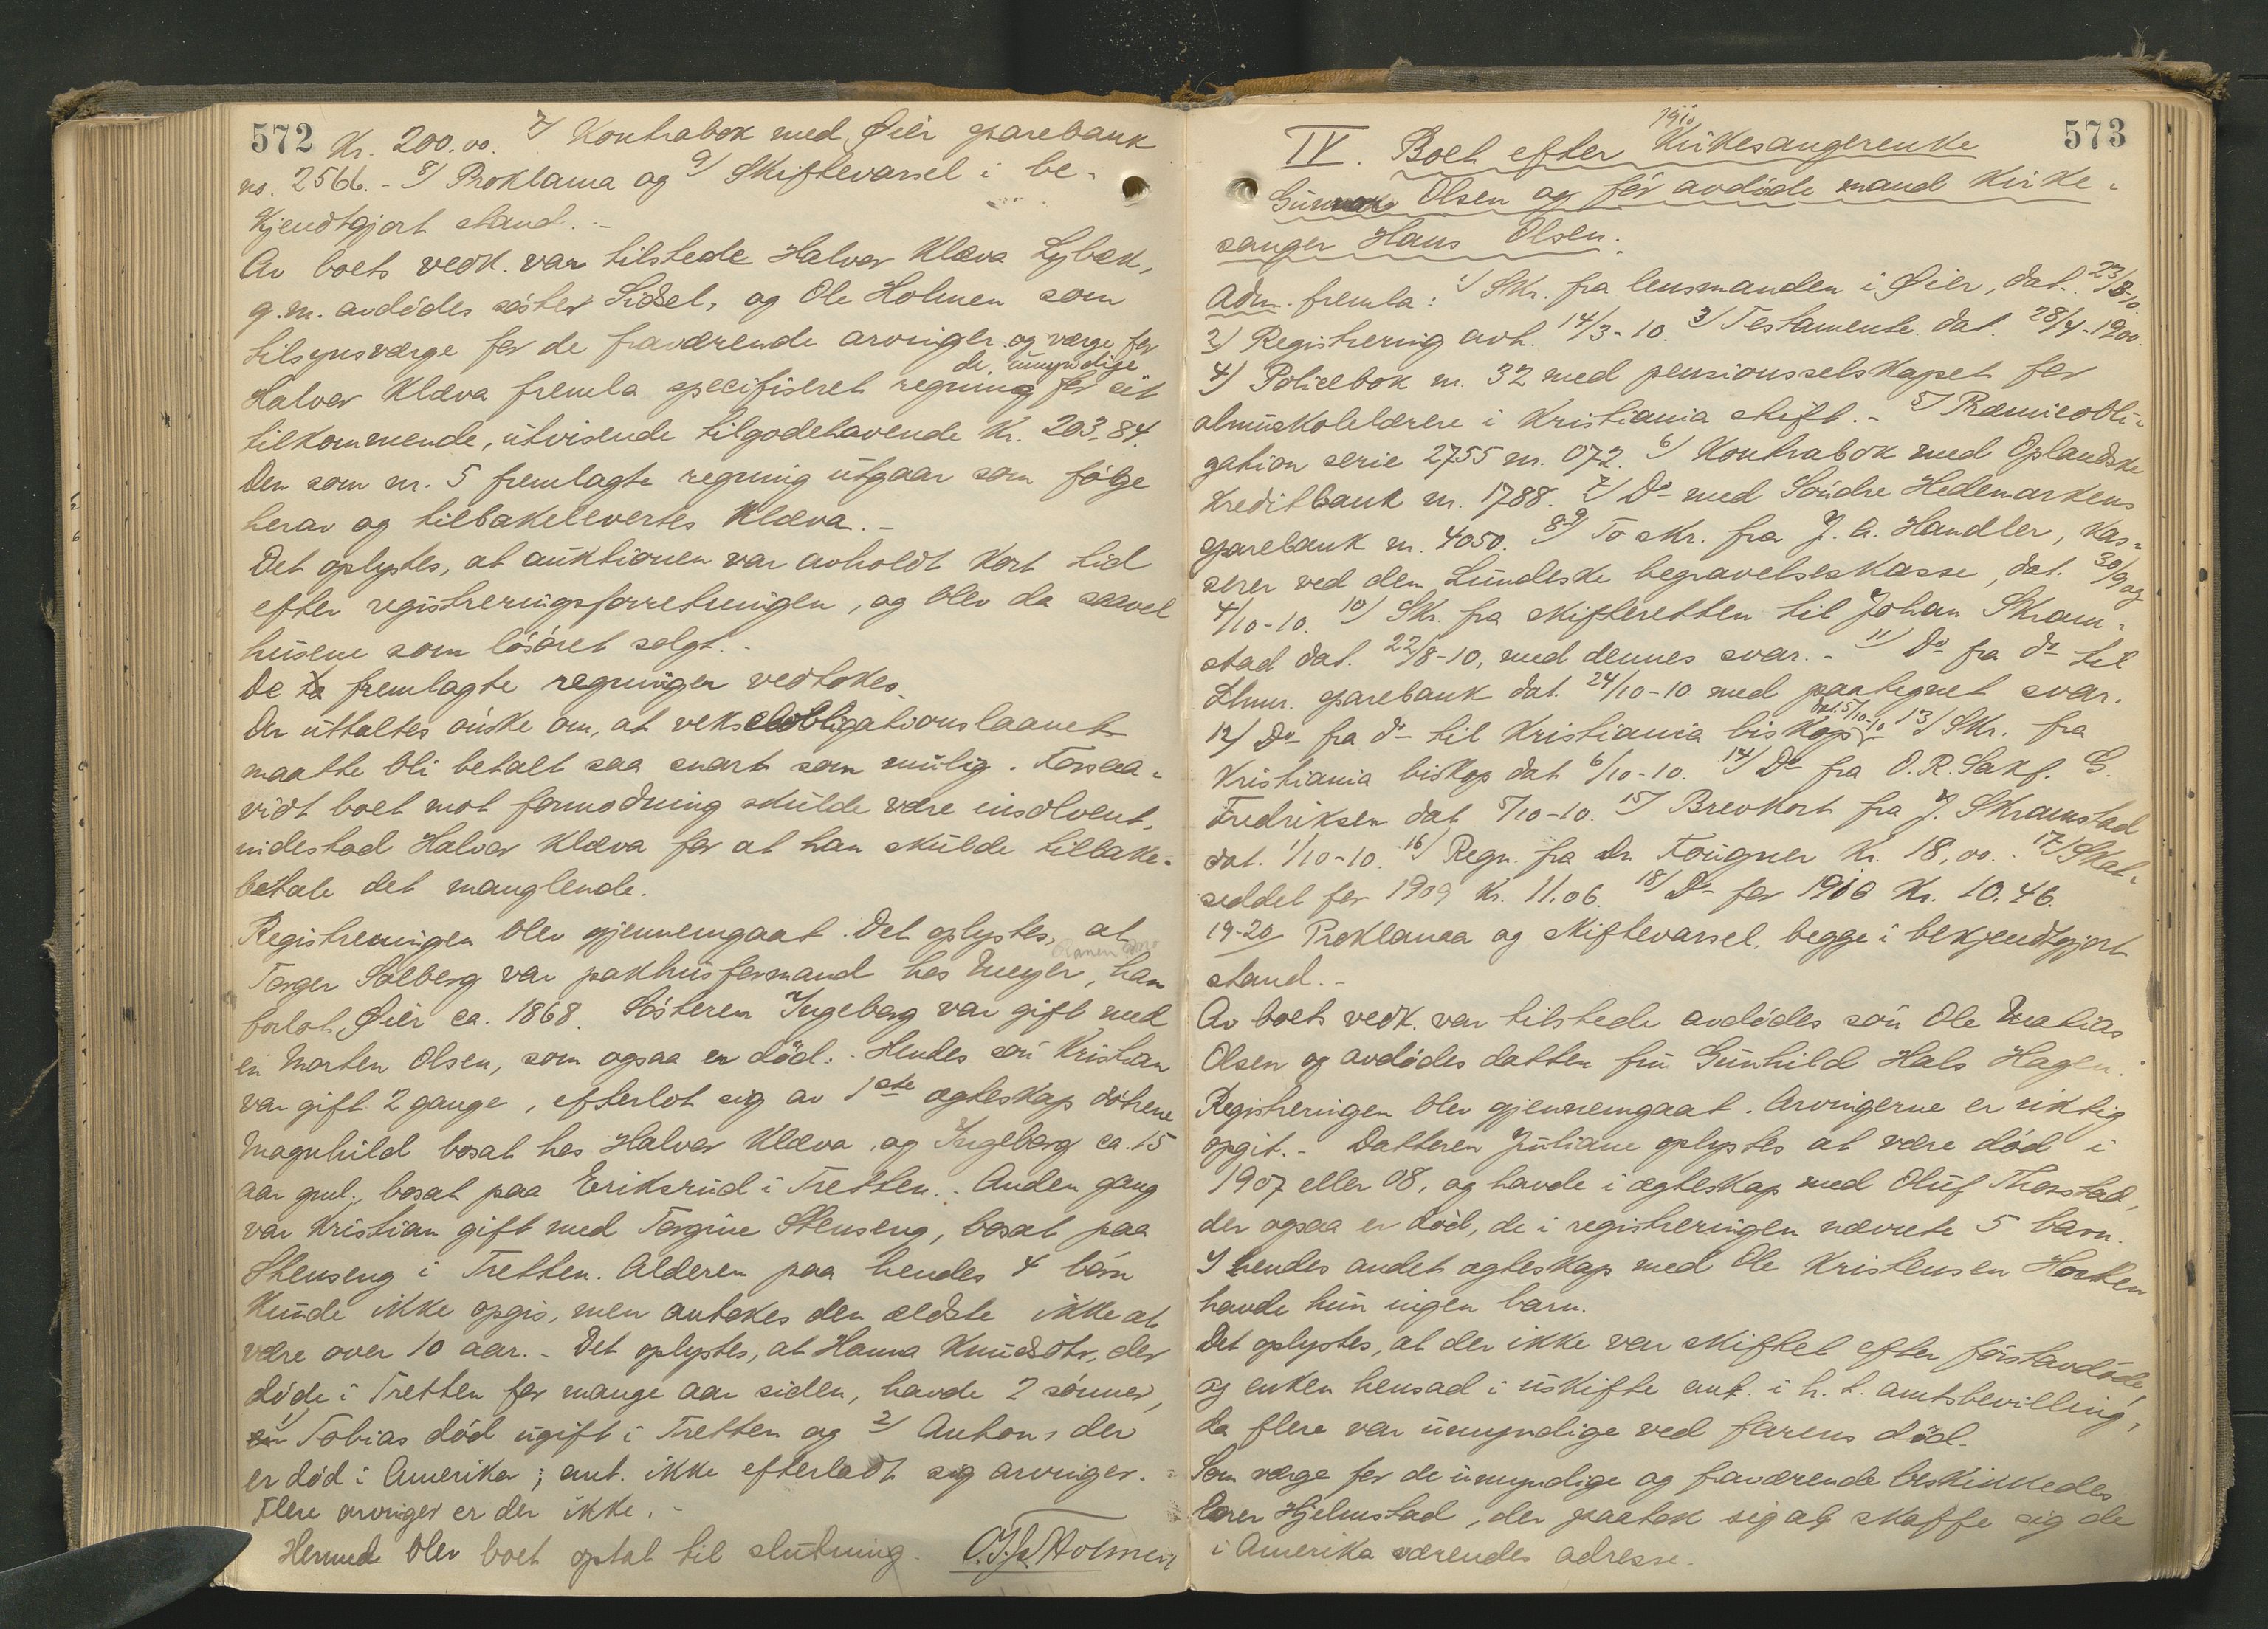 572 Kr. 200.00. 7) Kontrabok med Øier sparebank
no. 2566. - 8) Proklama og 9) Skiftevarsel i be-
kjendtgjort stand. -
Av boets vedk. var tilstede Halvor Klæva Lybæk,
g.m. avdødes søster Sidsel, og Ole Holmen som
tilsynsværge for de fraværende arvinger og værge for
de umyndige
Halvor Klæva fremla specifiseret regning for sit
tilkommende, utvisende tilgodehavende kr. 203,84.
Den som nr. 5 fremlagte regning utgaar som følge
herav og tilbakelevertes Klæva. -
Det oplystes, at auktionen var avholdt kort tid
efter registreringsforretningen, og blev da saavel
husene som løsøret solgt. -
De fremlagte regninger vedtokes.
Der uttaltes ønske om, at vekselobligationslaanet
maatte bli betalt saa snart som mulig. Forsaa-
vidt boet mot formodning skulde være insolvent,
indestod Halvor Klæva for at han skulde tilbake-
betale det manglende.
Registreringen blev gjennemgaat. Det oplystes, at
Torger Solberg var pakhusformand hos Meyer, han
forlot Øier ca. 1868. Søsteren Ingeborg var gift med
en Morten Olsen, som ogsaa er død. - Hendes søn Kristian
var gift 2 gange, efterlot sig av 1ste ægteskap døtrene
Magnhild bosat hos Halvor Klæva, og Ingeborg ca. 15
aar gml., bosat paa Eriksrud i Tretten. - Anden gang
var Kristian gift med Torgine Stenseng, bosat paa
Stenseng i Tretten. Alderen paa hendes 4 børn
kunde ikke opgis, men antokes den ældste ikke at
være over 10 aar. - Det oplystes, at Hanna Knudsdtr, der
døde i Tretten for mange aar siden, havde 2 sønner,
1) Tobias død ugift i Tretten og 2) Anton, der
er død i Amerika; ant. ikke efterladt sig arvinger. -
Flere arvinger er der ikke. -
Hermed blev boet optat til slutning. O. Holmen
573
1910
IV. Boet efter Kirkesangerenke
Olsen og før avdøde mand kirke-
sanger Hans Olsen.
Adm. fremla: 1) Skr. fra lensmanden i Øier, dat. 23/8-10.
2) Registrering avh. 14/3-10. 3) Testamente dat. 28/4-1900.
4) Policebok nr. 32 med pensionsselskapet for
almuskolelærere i Kristiania stift. - 5) Præmieobli-
gation serie 2755 nr. 072. 6) Kontrabok med Oplandske
kreditbank nr. 1788. 7) Do med Søndre Hedemarkens
sparebank nr. 4050. 8-9) To skr. fra J. A. Handler, kas-
serer ved den Lundeske begravelseskasse, dat. 30/9 og
4/10-10. 10) Skr. fra skifteretten til Johan Skram-
stad dat. 22/8-10, med dennes svar. - 11) Do fra do til
Lhmr. sparebank dat. 24/10-10 med paategnet svar.
12) Do fra do til Kristiania biskop dat. 5/10-10 13) Skr. fra
Kristiania biskop dat 6/10-10. 14) Do fra O.R.Sakf. G.
Fredriksen dat 5/10-10. 15) Brevkort fra J. Skramstad
dat. 1/10-10. 16) Regn. fra Dr. Fougner kr. 18,00. - 17) Skat-
seddel for 1909 kr. 11.06. 18) Do for 1910 kr. 10.46.
19-20 Proklama og skiftevarsel, begge i bekjendtgjort
stand. -
Av boets vedk. var tilstede avdødes søn Ole Matias
Olsen og avdødes datter fru Gunhild Hals Hagen.
Registreringen blev gjennemgaat. Arvingerne er riktig
opgit. - Datteren Juliane oplystes at være død i
1907 eller 08, og havde i ægteskap med Oluf Thorstad,
der ogsaa er død, de i registreringen nævnte 5 barn.
I hendes andet ægteskap med Ole Kristensen Horten
havde hun ingen barn.
Det oplystes, at der ikke var skiftet efter førstavdøde,
og enken hensad i uskifte ant. i h. t. amtsbevilling,
da flere var umyndige ved farens død.
Som værge for de umyndige og fraværende beskikkedes
lærer Hjelmstad, der paatok sig at skaffe sig de
i Amerika værendes adresse.